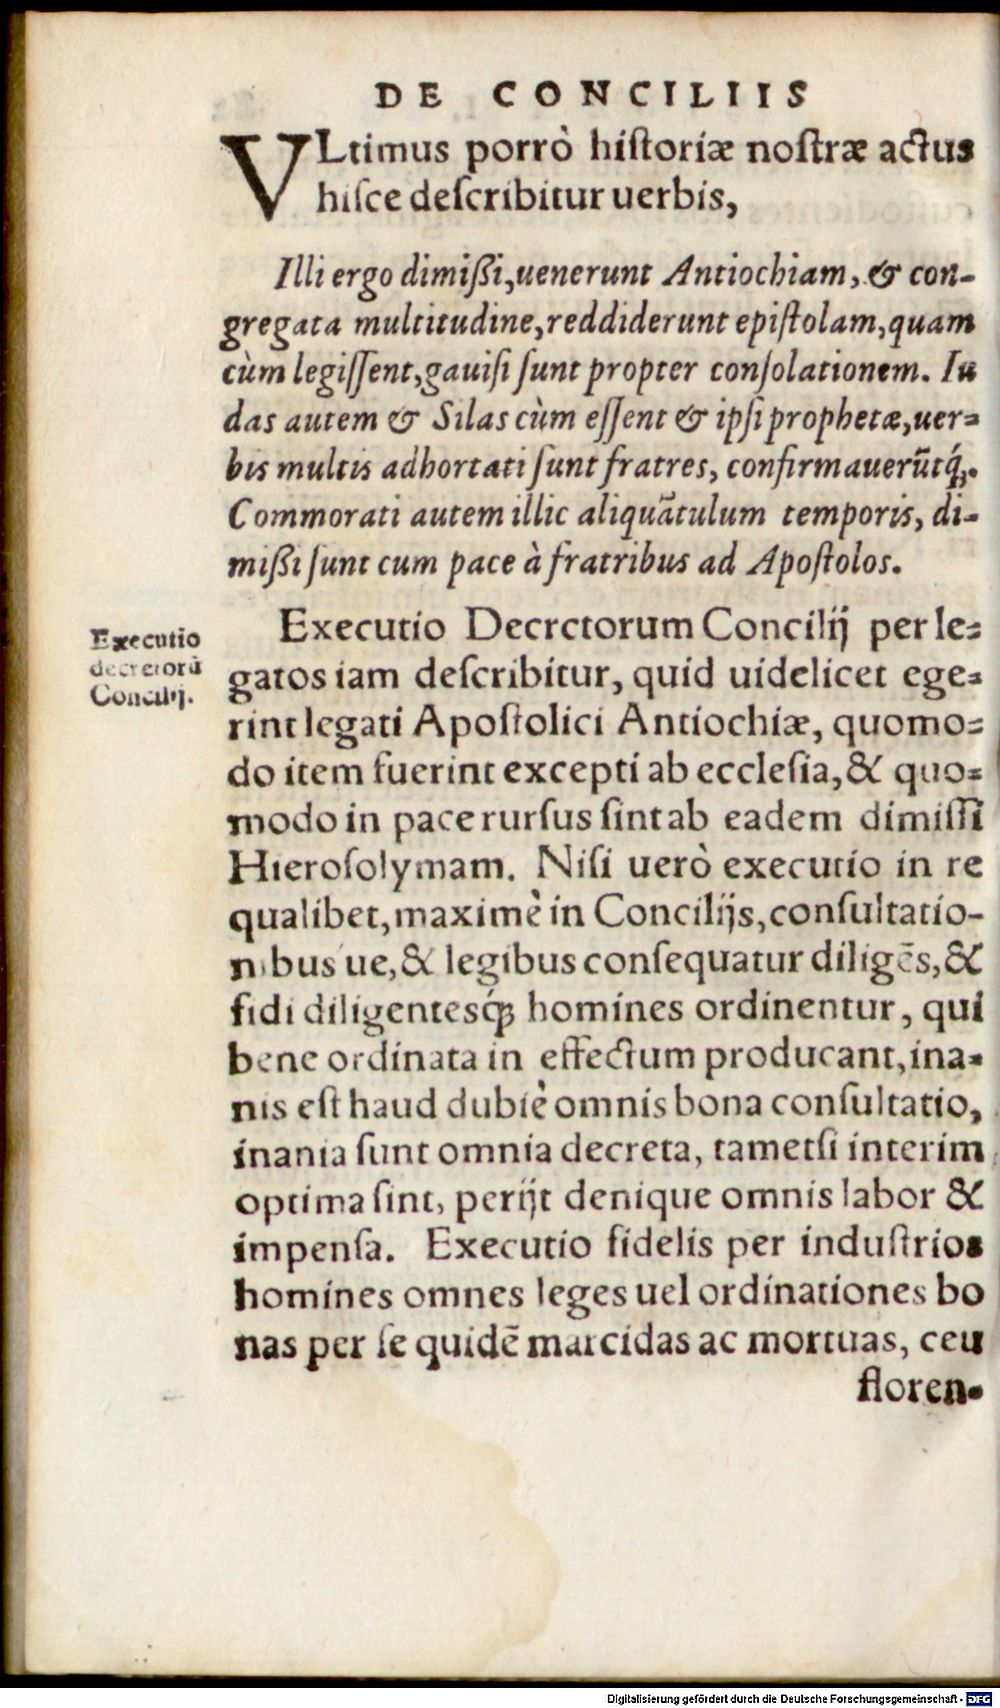 DE CONCILIIS
VLtimus porrò hiſtoriæ noſtræ actus
hiſce deſcribitur uerbis,
Illi ergo dimißi, uenerunt Antiochiam, & con-
gregata multitudine, reddiderunt epiſtolam, quam
cùm legiſſent, gauiſi ſunt propter conſolationem. Iu
das autem & Silas cùm eſſent & ipſi prophetæ, uer-
bis multis adhortati ſunt fratres, confirmauerũtq́;.
Commorati autem illic aliquãtulum temporis, di-
mißi ſunt cum pace à fratribus ad Apoſtolos.
Executio
decretorũ
Concilij.
Executio Decretorum Concilij per le-
gatos iam deſcribitur, quid uidelicet ege-
rint legati Apoſtolici Antiochiæ, quomo-
do item fuerint excepti ab eccleſia, & quo-
modo in pace rurſus ſint ab eadem dimiſſi
Hieroſolymam. Niſi uerò executio in re
qualibet, maximè in Concilijs, conſultatio-
nibus ue, & legibus conſequatur diligẽs, &
fidi diligentesq́; homines ordinentur, qui
bene ordinata in effectum producant, ina-
nis eſt haud dubiè omnis bona conſultatio,
inania ſunt omnia decreta, tametſi interim
optima ſint, perijt denique omnis labor &
impenſa. Executio fidelis per induſtrios
homines omnes leges uel ordinationes bo
nas per ſe quidẽ marcidas ac mortuas, ceu
floren-
Digitalisierung gefördert durch die Deutsche Forschungsgemeinschaft - DFG